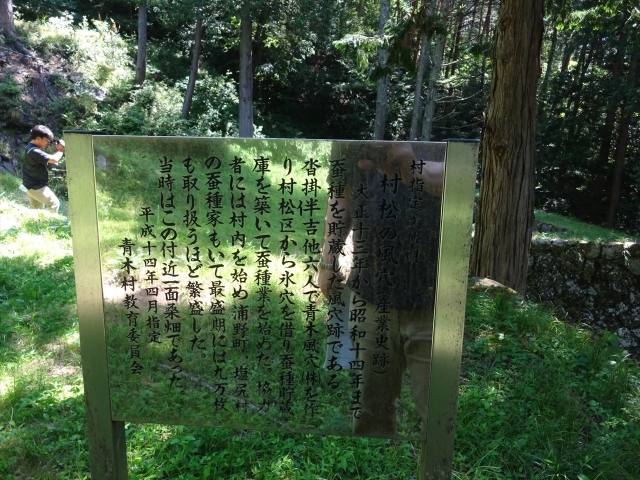 村指定
村松の風穴(産業史跡)
大正十三年から昭和十四年まで
蚕種を貯蔵した風穴跡である
沓掛伴吉他六人で青木風穴㈱を作
り村松区から氷穴を借り蚕種貯蔵
庫を築いて蚕種業を始めた。
者には村内を始め浦野町、塩尻村
の蚕種家もいて最盛期には九万枚
も取り扱うほど繁盛した。
当時はこの付近一面桑畑であった
平成十四年四月指定
青木村教育委員会